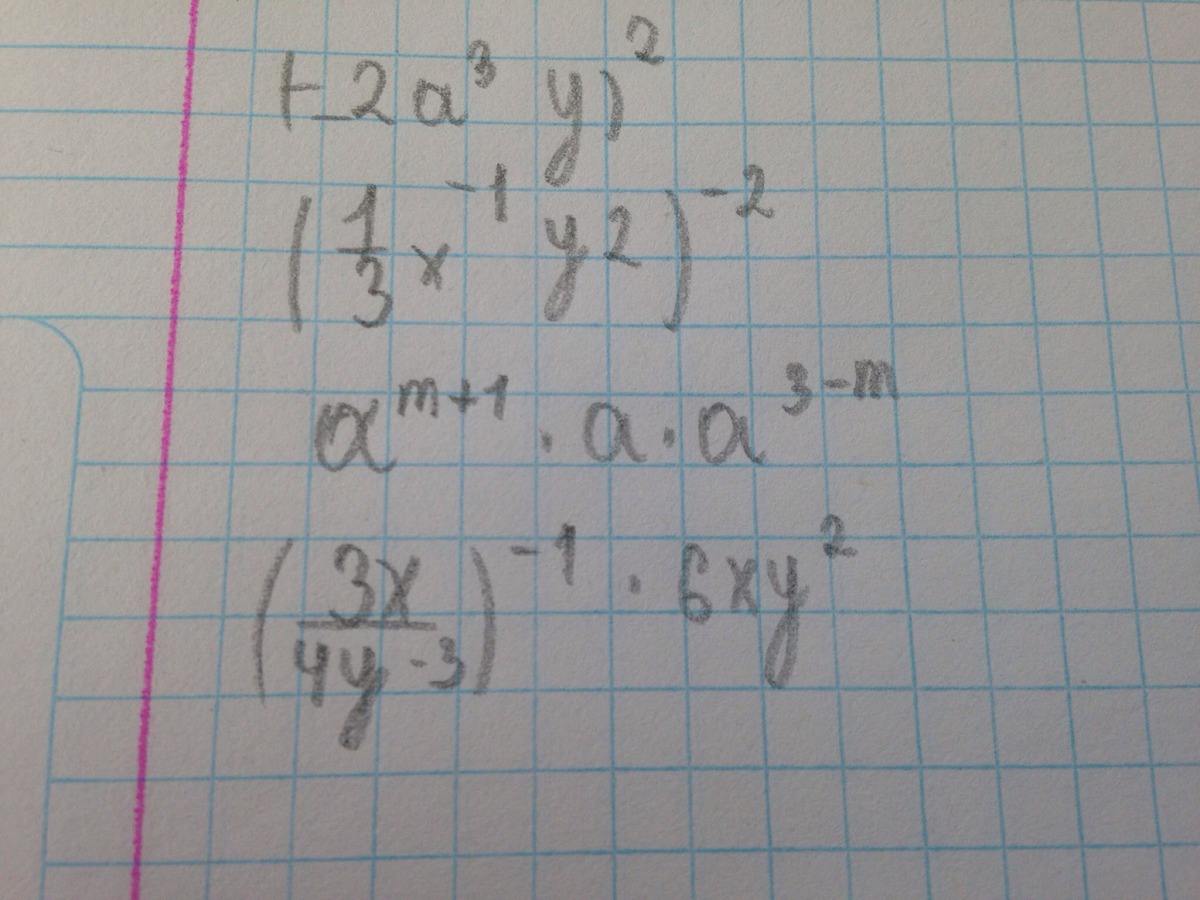 (-2a³ y)²
(1/3 x⁻¹ y2)⁻²
a^(m+1) · a · a^(3-m)
(3x/(4y-3))⁻¹ · 6xy²